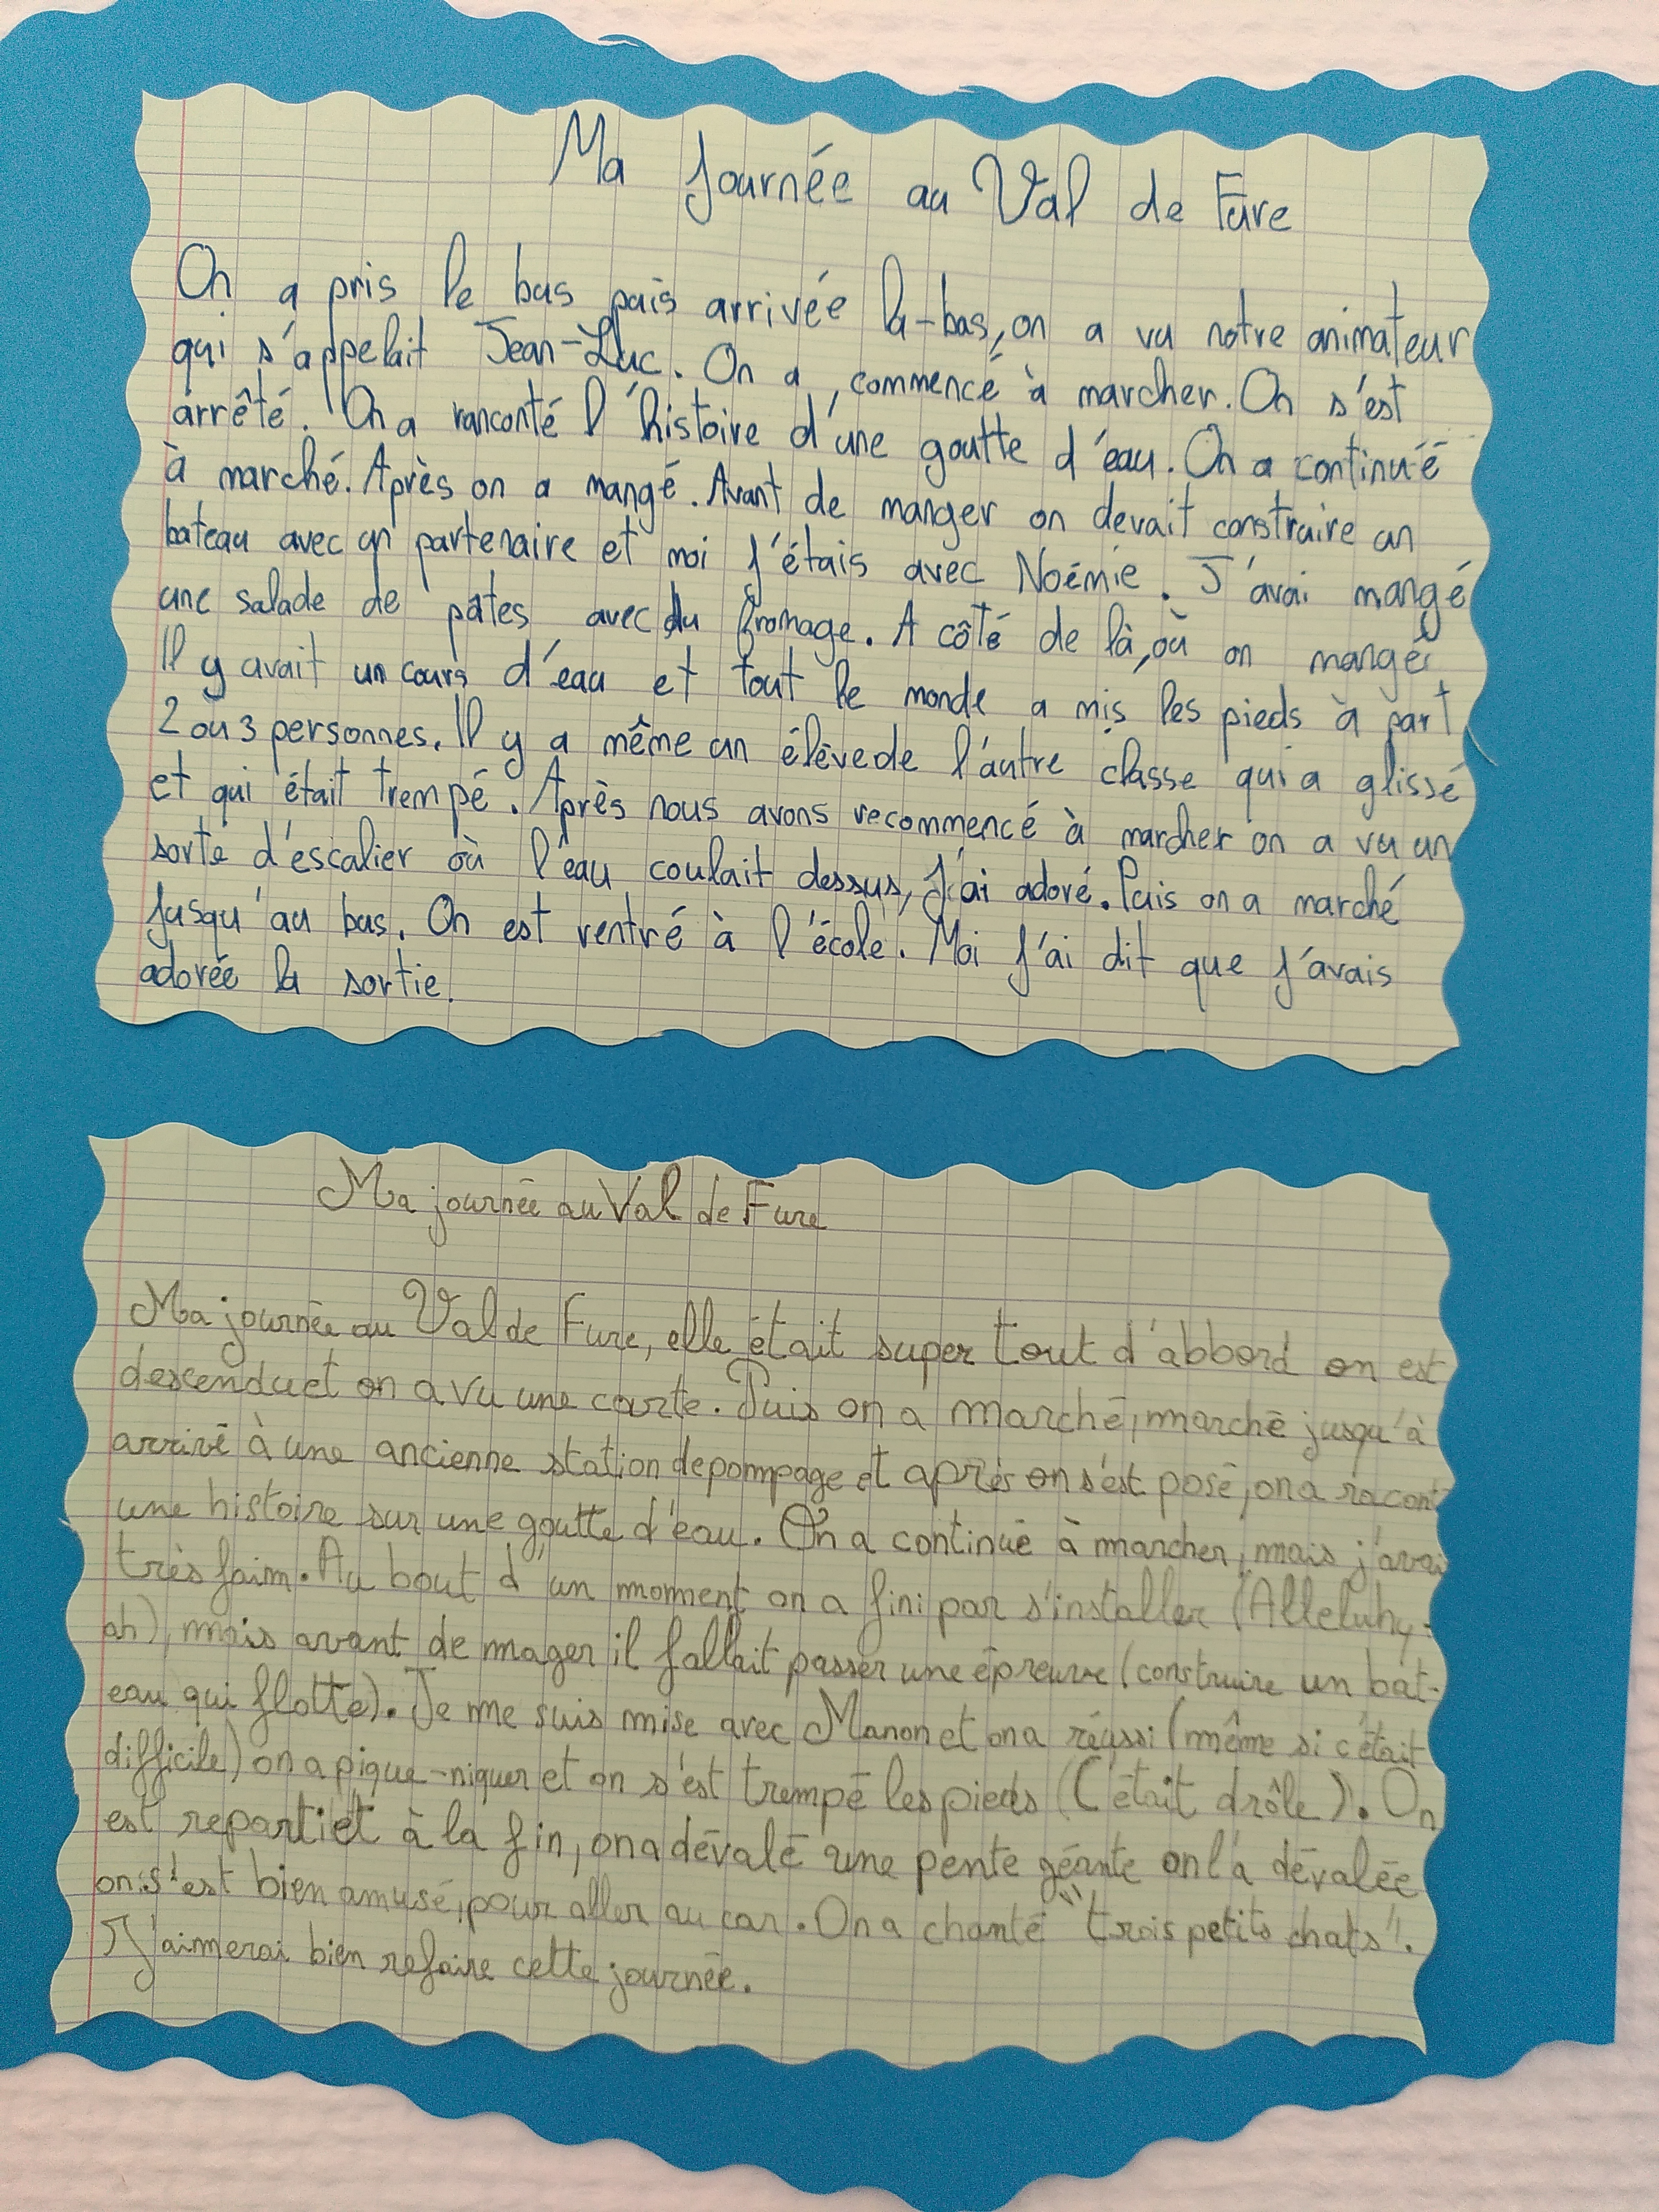 Ma Journée au Val de Fure
On a pris le bus puis arrivée là-bas, on a vu notre animateur
qui s'appelait Jean-Luc. On a commencé à marcher. On s'est
arrêté. On a ranconté l'histoire d'une goutte d'eau. On a continué
à marché. Après on a mangé. Avant de manger on devait construire un
bateau avec un partenaire et moi j'étais avec Noémie. J'avai mangé
une salade de pâtes avec du fromage. A côté de là, où on manger
Il y avait un cours d'eau et tout le monde a mis les pieds à part
2 ou 3 personnes. Il y a même un élève de l'autre classe qui a glissé
et qui était trempé. Après nous avons recommencé à marcher on a vu un
sorte d'escalier où l'eau coulait dessus, j'ai adoré. Puis on a marché
jusqu'au bus. On est rentré à l'école. Moi j'ai dit que j'avais
adorée la sortie.
Ma journée au Val de Fure
Ma journée au Val de Fure, elle était super tout d'abbord on est
descendu et on a vu une carte. Puis on a marché, marché jusqu'à
arrivé à une ancienne station de pompage et après on s'est posé, on a racont
une histoire sur une goutte d'eau. On a continué à marcher, mais j'avai
très faim. Au bout d'un moment on a fini par s'installer (Alleluhy-
ah), mais avant de mager il fallait passer une épreuve (construire un bat-
eau qui flotte). Je me suis mise avec Manon et on a réussi (même si c'était
difficile) on a pique-niquer et on s'est trempé les pieds (C'était drôle). On
est reparti et à la fin, on a dévalé une pente géante on l'a dévalée
on s'est bien amusé, pour aller au car. On a chanté "trois petits chats".
J'aimerai bien refaire cette journée.